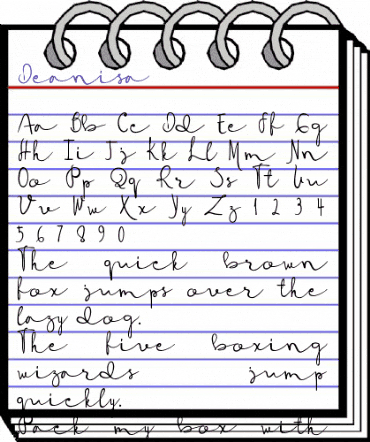 Deanisa
Aa Bb Cc Dd Ee Ff Gg
Hh Ii Jj Kk Ll Mm Nn
Oo Pp Qq Rr Ss Tt Uu
Vv Ww Xx Yy Zz 1 2 3 4
5 6 7 8 9 0
The quick brown
fox jumps over the
lazy dog.
The five boxing
wizards jump
quickly.
Pack my box with